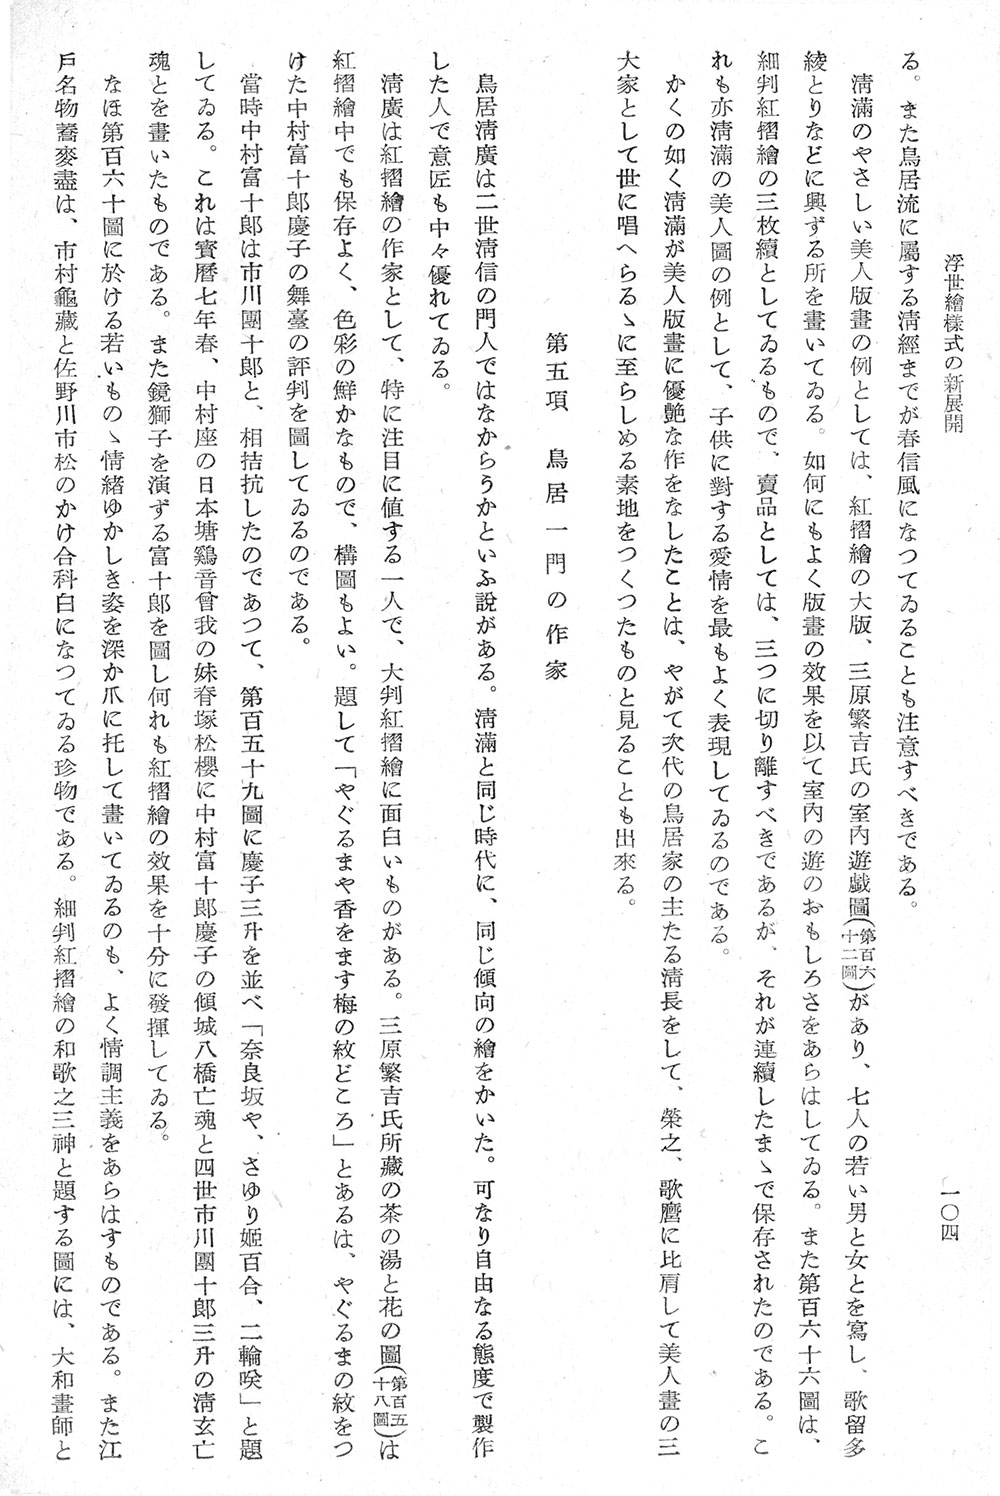 浮世繪樣式の新展開
一〇四
る。また鳥居流に屬する淸經までが春信風になつてゐることも注意すべきである。
淸滿のやさしい美人版畫の例としては、紅摺繪の大版、三原繁吉氏の室內遊戲圖(第百六十二圖)があり、七人の若い男と女とを寫し、歌留多
綾とりなどに興ずる所を畫いてゐる。如何にもよく版畫の效果を以て室內の遊のおもしろさをあらはしてゐる。また第百六十六圖は、
細判紅摺繪の三枚續としてゐるもので、賣品としては、三つに切り離すべきであるが、それが連續したまゝで保存されたのである。こ
れも亦淸滿の美人圖の例として、子供に對する愛情を最もよく表現してゐるのである。
かくの如く淸滿が美人版畫に優艷な作をなしたことは、やがて次代の鳥居家の主たる淸長をして、榮之、歌麿に比肩して美人畫の三
大家として世に唱へらるゝに至らしめる素地をつくつたものと見ることも出來る。
第五項　鳥居一門の作家
鳥居淸廣は二世淸信の門人ではなからうかといふ說がある。淸滿と同じ時代に、同じ傾向の繪をかいた。可なり自由なる態度で製作
した人で意匠も中々優れてゐる。
淸廣は紅摺繪の作家として、特に注目に値する一人で、大判紅摺繪に面白いものがある。三原繁吉氏所藏の茶の湯と花の圖(第百五十八圖)は
紅摺繪中でも保存よく、色彩の鮮かなもので、構圖もよい。題して「やぐるまや香をます梅の紋どころ」とあるは、やぐるまの紋をつ
けた中村富十郞慶子の舞臺の評判を圖してゐるのである。
當時中村富十郞は市川團十郞と、相拮抗したのであつて、第百五十九圖に慶子三升を並べ「奈良坂や、さゆり姬百合、二輪咲」と題
してゐる。これは寳曆七年春、中村座の日本塘鷄音曾我の妹脊塚松櫻に中村富十郞慶子の傾城八橋亡魂と四世市川團十郞三升の淸玄亡
魂とを畫いたものである。また鏡獅子を演ずる富十郞を圖し何れも紅摺繪の效果を十分に發揮してゐる。
なほ第百六十圖に於ける若いものゝ情緖ゆかしき姿を深か爪に托して畫いてゐるのも、よく情調主義をあらはすものである。また江
戶名物蕎麥盡は、市村龜藏と佐野川市松のかけ合科白になつてゐる珍物である。細判紅摺繪の和歌之三神と題する圖には、大和畫師と